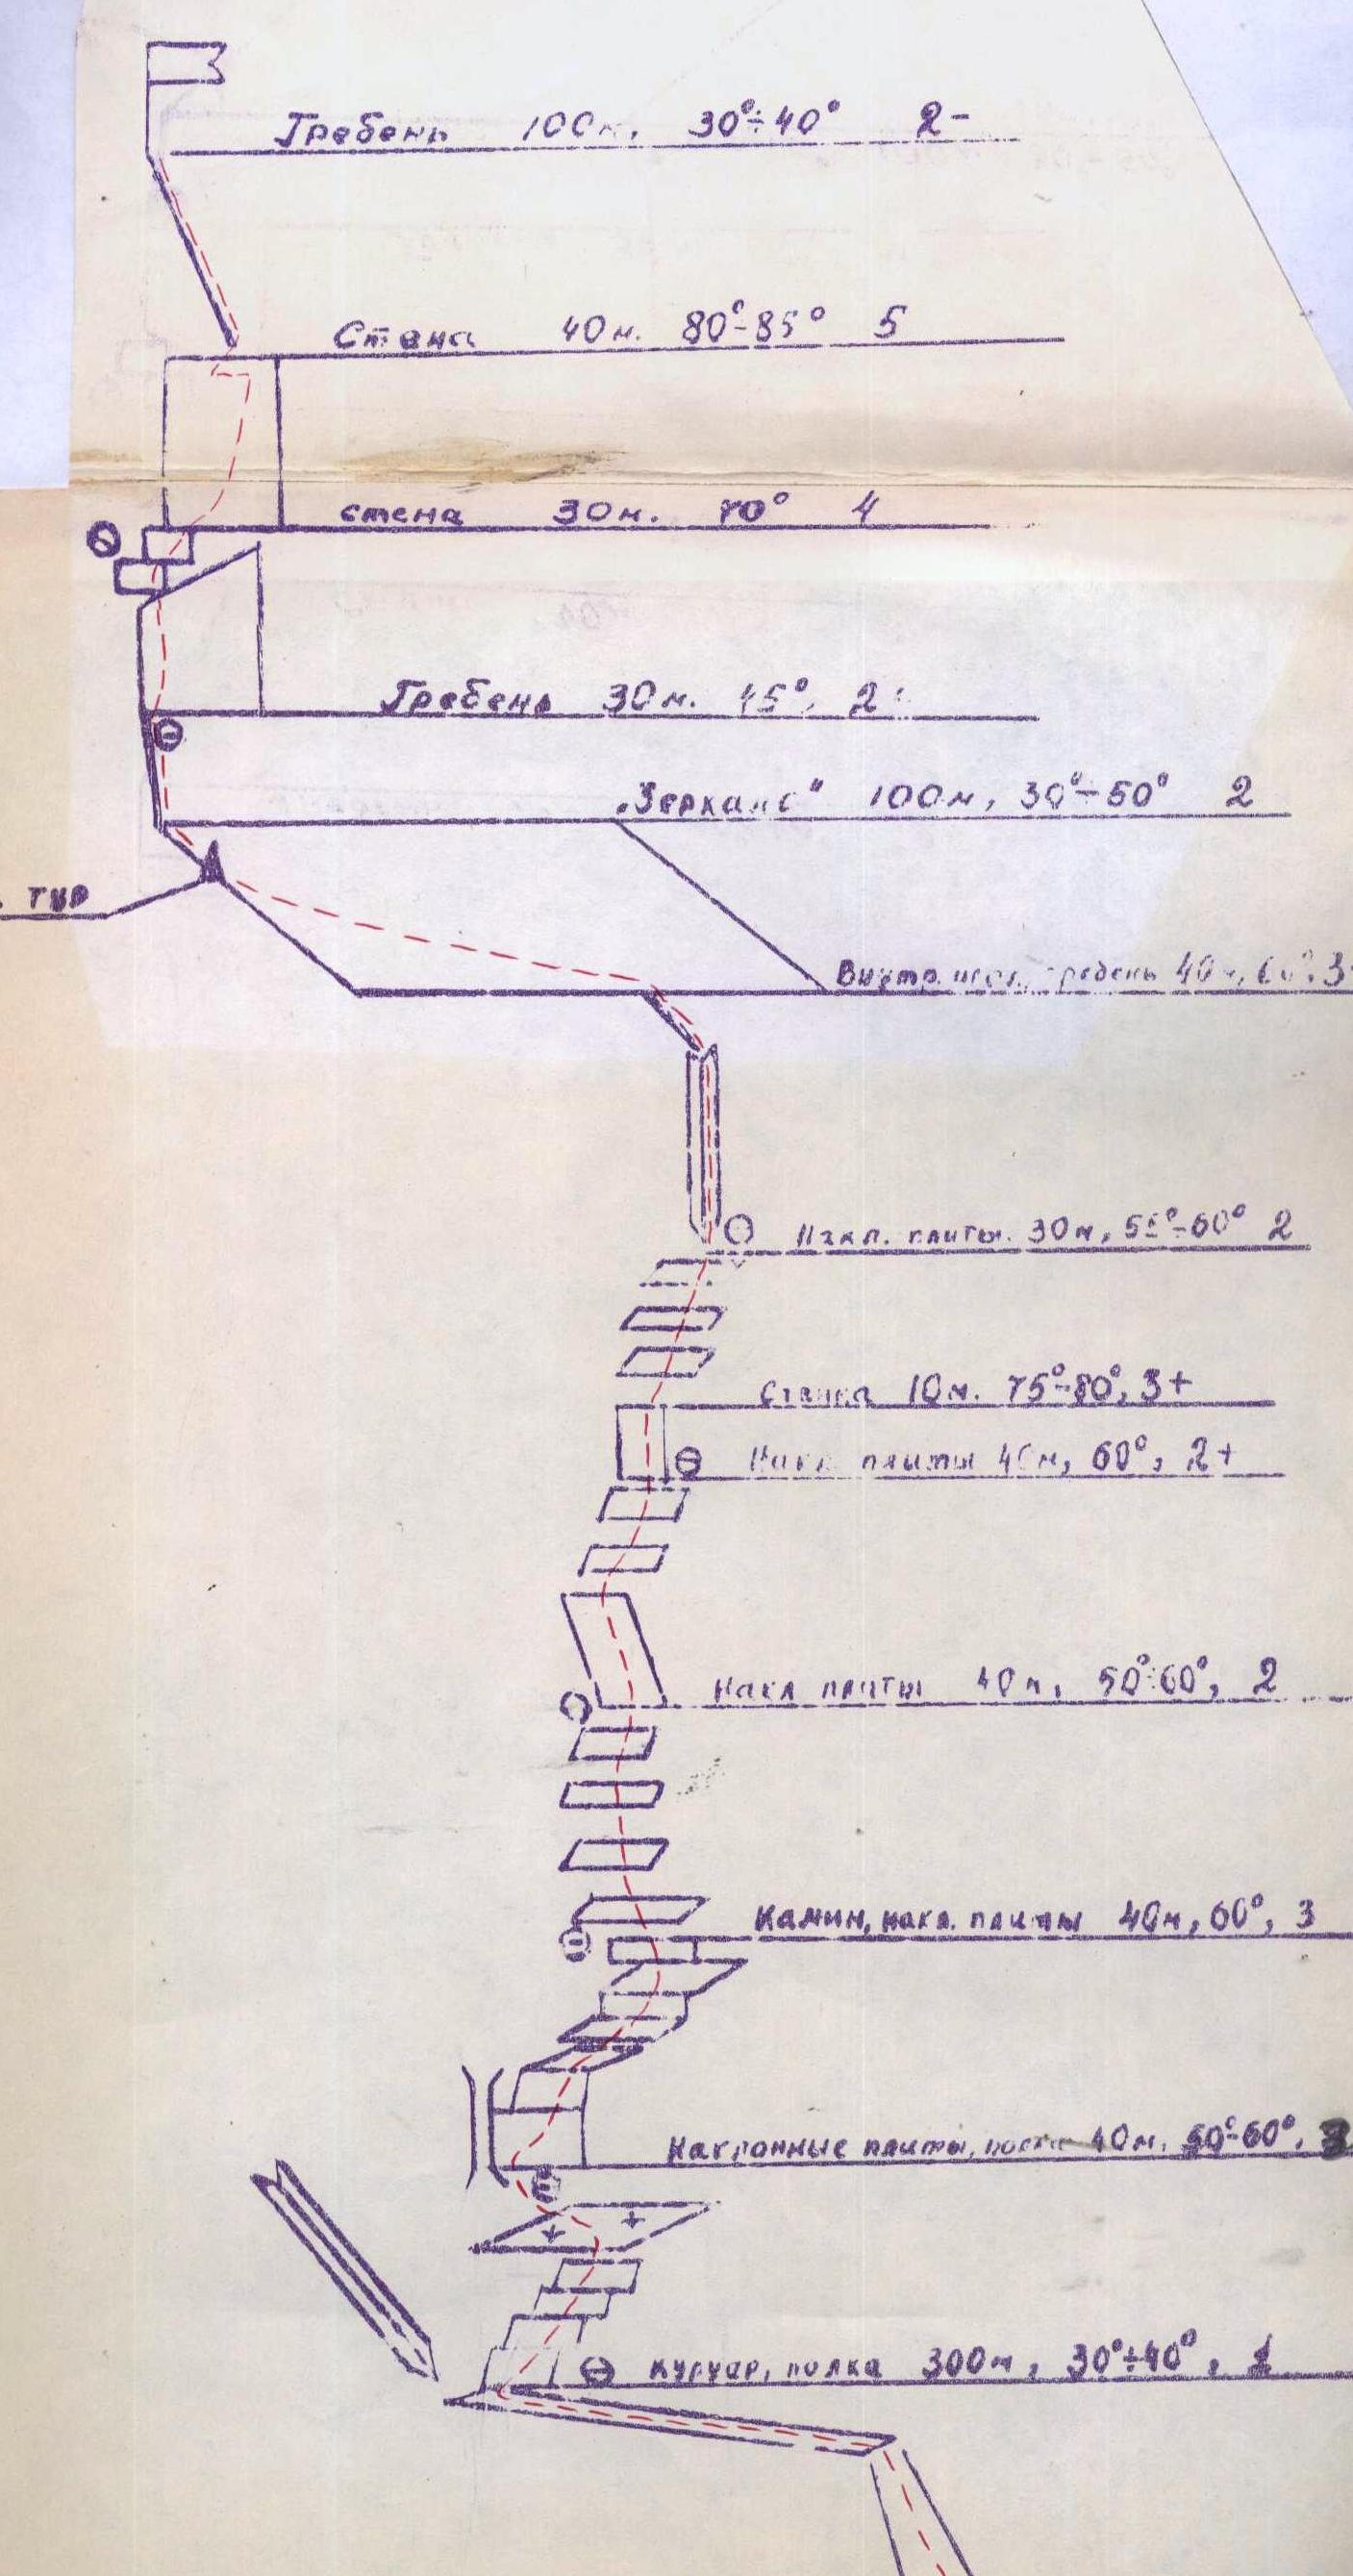 Гребень 100м, 30°÷40° 2-
Стена 40м. 80°-85° 5
стена 30м. 70° 4
Гребень 30м. 45°, 2
„Зеркало" 100м, 30°÷50° 2
тур
Внутр. гребень 40м, 60°, 3
Накл. плиты. 30м, 55°÷60° 2
Стенка 10м. 75°-80°, 3+
Накл плиты 40м, 60°, 2+
Накл плиты 40м, 50°÷60°, 2
Камин, накл. плиты 40м, 60°, 3
Наклонные плиты, полка 40м. 50°-60°,
кулуар, полка 300м, 30°÷40°, 1